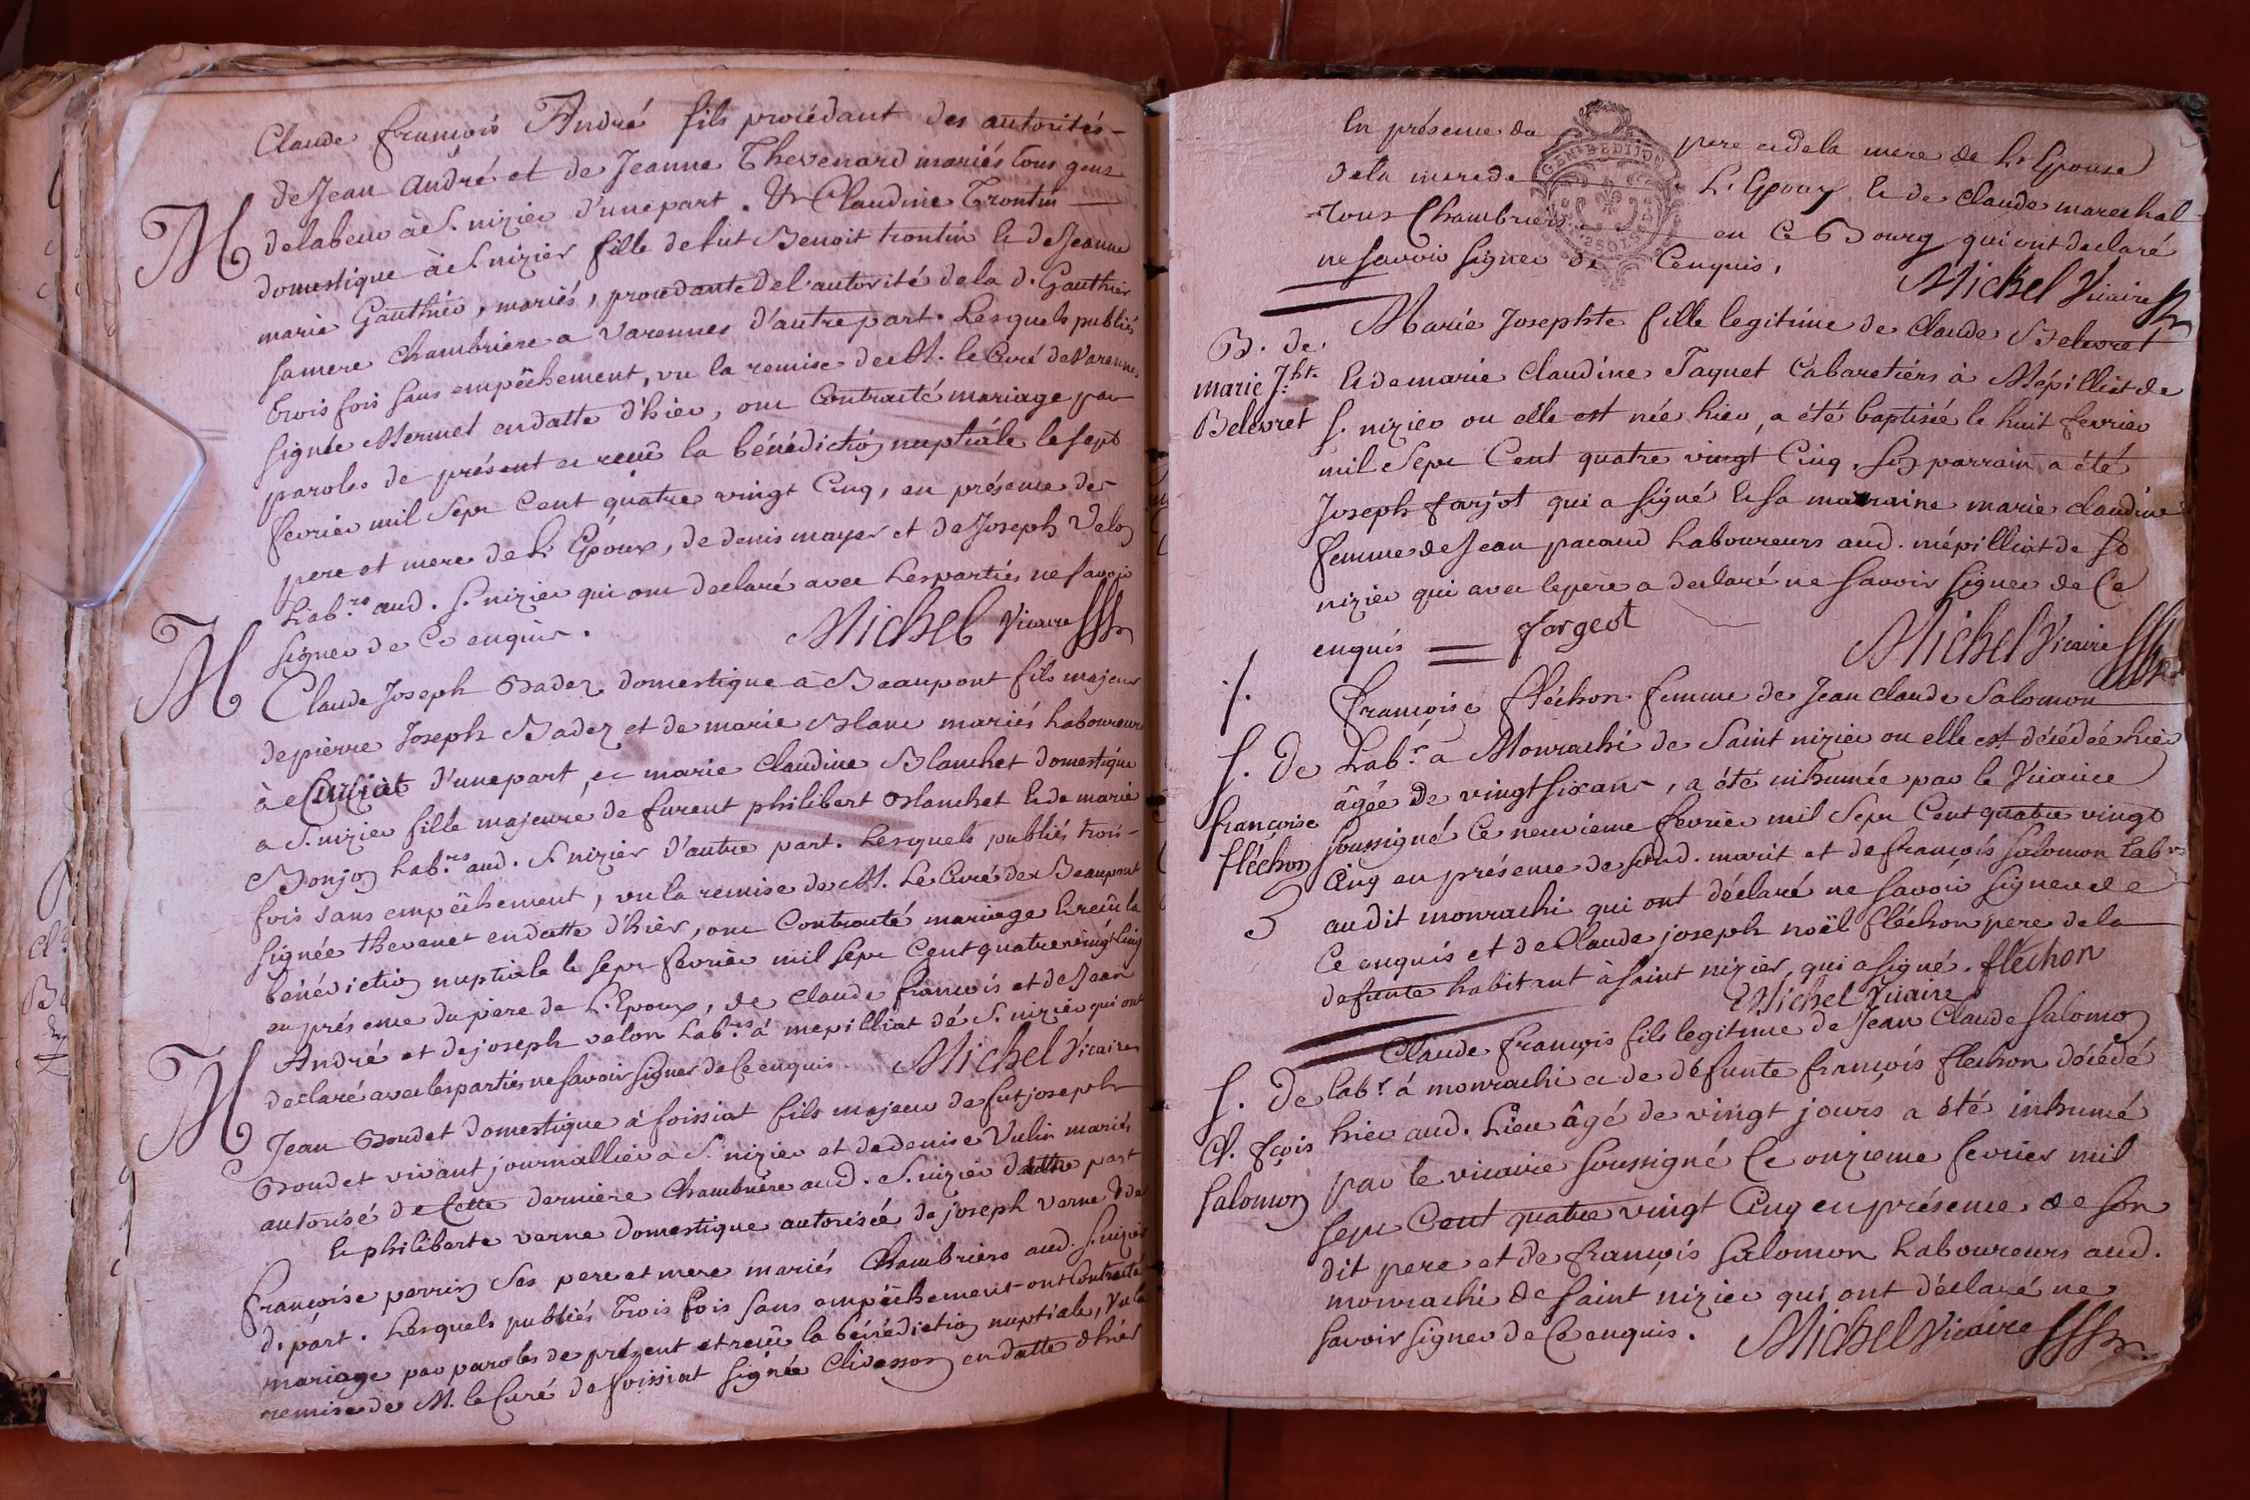 Claude françois André fils procédant des autorités
de Jean André et de Jeanne Thevenard mariés tous gens
M
delabeur à S. nizier d'une part. Et Claudine Trontin
domestique à S. nizier fille de fut Benoit trontin & de Jeanne
marie Gauthier, mariés, procedante de l'autorité de la d. Gauthier
sa mere chambriere a Varennes d'autre part. Lesquels publiés
trois fois sans empêchement, vu la remise de M. le Curé de Varennes
signée Mermet en datte d'hier, ont Contracté mariage par
paroles de présent et reçu la bénédictiõ nuptiale le sept
fevrier mil sept Cent quatre vingt Cinq, en présence des
pere et mere de L'Epoux, de denis mayer et de Joseph Velon
Lab.rs aud. S. nizier qui ont declaré avec Les parties ne savoir
signer de Ce enquis.
Michel Vicaire
M
Claude Joseph Badez domestique à Beaupont fils majeur
de pierre Joseph Badez et de marie Blanc mariés Laboureurs
à Cuisiat d'une part, et marie Claudine Blanchet domestique
a S. nizier fille majeure de furent philibert Blanchet & de marie
Bonjon Lab.rs aud. S. nizier d'autre part. Lesquels publiés trois
fois sans empêchement, vu la remise de M. Le Curé de Beaupont
signée thevenet en datte d'hier, ont Contracté mariage & reçu la
bénédictiõ nuptiale le sept fevrier mil sept Cent quatre vingt Cinq
en présence du père de L'Epoux, de Claude françois et de Jean
André et de joseph velon Lab.rs à mepilliat de S. nizier qui ont
declaré avec les parties ne savoir signer de Ce enquis.
Michel Vicaire
M
Jean Boudet domestique à foissiat fils majeur de fut joseph
Boudet vivant journallier à S. nizier et de denise Vulin mariés
autorisé de Cette derniere Chambriere aud. S. nizier d'autre part
& philiberte verne domestique autorisée de joseph verne & de
françoise perrin ses pere et mere mariés Chambriers aud. S. nizier
d. part. Lesquels publiés trois fois sans empêchement ont Contracté
mariage par paroles de présent et reçu la bénédictiõ nuptiale, Vu la
remise de M. le Curé de foissiat signée Clivasson en datte d'hier
En présence du pere et de la mere de L'Epouse
de la mere de L'Epoux & de Claude marechal
Tous Chambriers en Ce Bourg qui ont declaré
ne savoir signer de Ce enquis,
GEN: DE DIJON
Michel Vicaire
B. de
marie J.hte
Belevret
Marie Josephte fille legitime de Claude Belevret
& de marie Claudine Taquet Cabaretiers à Mépilliat de
S. nizier ou elle est née hier, a été baptisée le huit fevrier
mil sept Cent quatre vingt Cinq. Son parrain a été
Joseph farjot qui a signé & sa marraine marie claudine
femme de Jean pacaud Laboureurs aud. mépilliat de St
nizier qui avec le pere a declaré ne savoir signer de Ce
enquis
Forgeot
Michel Vicaire
S. De
françoise
fléchon
Françoise fléchon femme de Jean Claude Salomon
Lab.r a Monrachi de Saint nizier ou elle est décédée hier
âgée de vingt six ans, a été inhumée par le Vicaire
soussigné Ce neuvieme fevrier mil sept Cent quatre vingt
Cinq en présence de son d. marit et de françois salomon Lab.rs
au dit monrachi qui ont déclaré ne savoir signer de
Ce enquis et de Claude joseph noël fléchon pere de la
defunte habitant à saint nizier, qui a signé. fléchon
Michel Vicaire
S. De
Cl. fçois
Salomon
Claude françois fils legitime de Jean Claude Salomon
Lab.r á monrachi et de défunte françois flechon décédé
hier aud. Lieu âgé de vingt jours a été inhumé
par le vicaire soussigné Ce onzieme fevrier mil
sept Cent quatre vingt Cinq en présence de son
dit pere et de françois Salomon Laboureurs aud.
monrachi de Saint nizier qui ont déclaré ne
savoir signer de Ce enquis.
Michel Vicaire